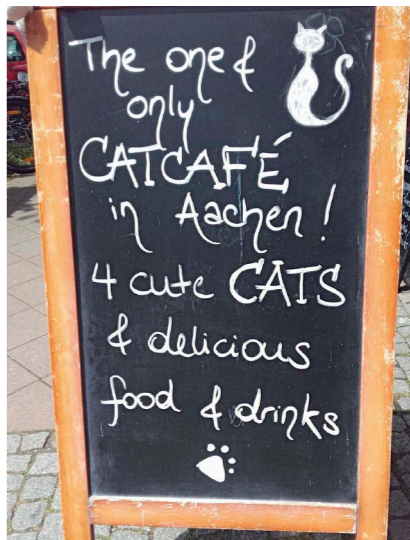 The one &
only
CATCAFÉ
in Aachen!
4 cute CATS
& delicious
food & drinks